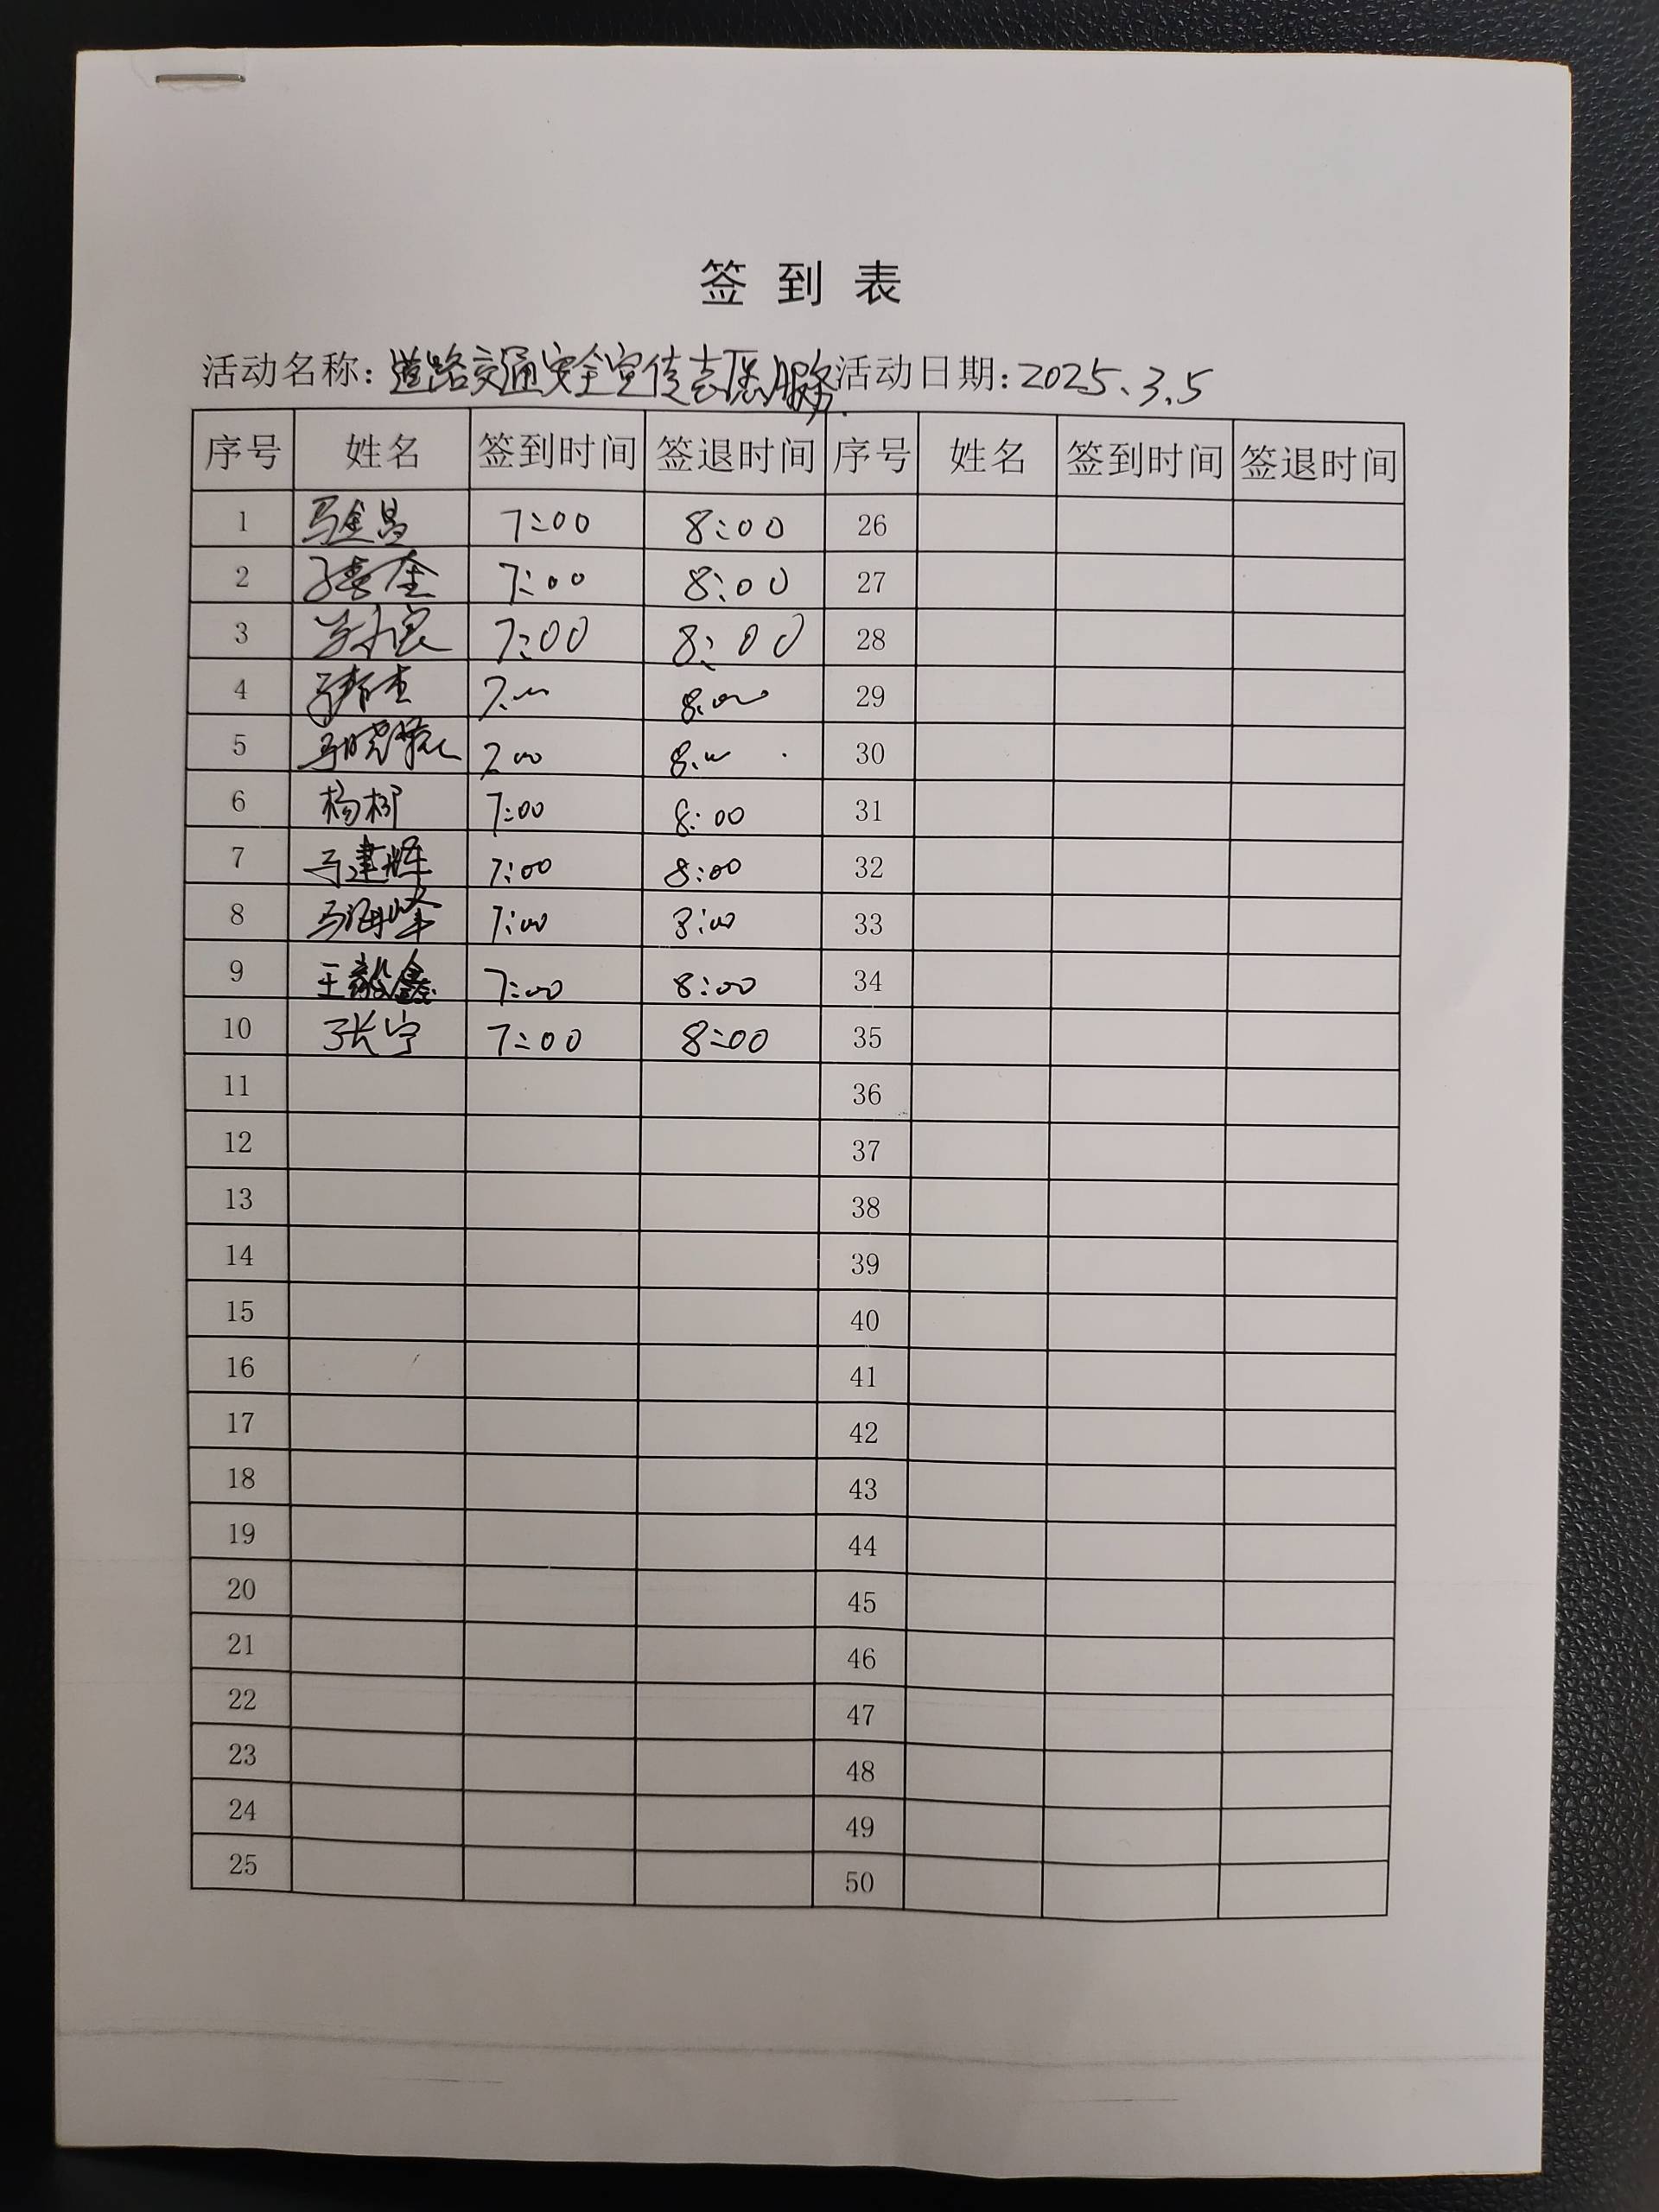 签到表
活动名称：道路交通安全宣传志愿服务 活动日期：2025.3.5
序号 姓名 签到时间 签退时间 序号 姓名 签到时间 签退时间
1 马金昌 7:00 8:00 26
2 7:00 8:00 27
3 7:00 8:00 28
4 7:00 8:00 29
5 7:00 8:00 30
6 杨柳 7:00 8:00 31
7 马建辉 7:00 8:00 32
8 马海峰 7:00 8:00 33
9 王毅鑫 7:00 8:00 34
10 张宁 7:00 8:00 35
11 36
12 37
13 38
14 39
15 40
16 41
17 42
18 43
19 44
20 45
21 46
22 47
23 48
24 49
25 50